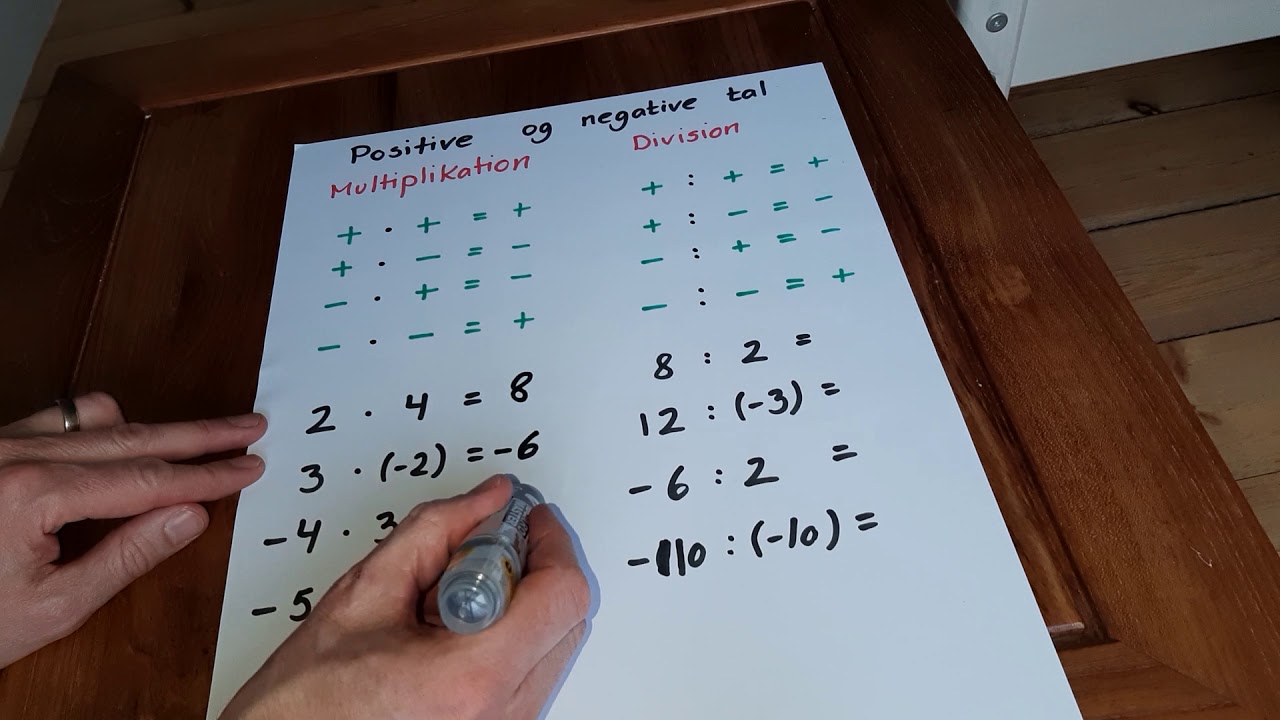 Positive og negative tal
Multiplikation
+ · + = +
+ · - = -
- · + = -
- · - = +
2 · 4 = 8
3 · (-2) = -6
-4 · 3
-5
Division
+ : + = +
+ : - = -
- : + = -
- : - = +
8 : 2 =
12 : (-3) =
-6 : 2 =
-110 : (-10) =